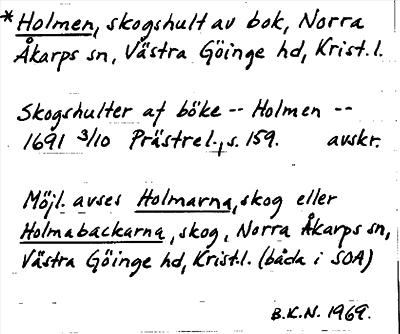 * Holmen, skogshult av bok, Norra
Åkarps sn, Västra Göinge hd, Krist. l.
Skogshulter af böke -- Holmen --
1691 3/10 Prästrel., s. 159. avskr.
Möjl. avses Holmarna, skog eller
Holmabackarna, skog, Norra Åkarps sn,
Västra Göinge hd, Krist. l. (båda i SOA)
B.K.N. 1969.